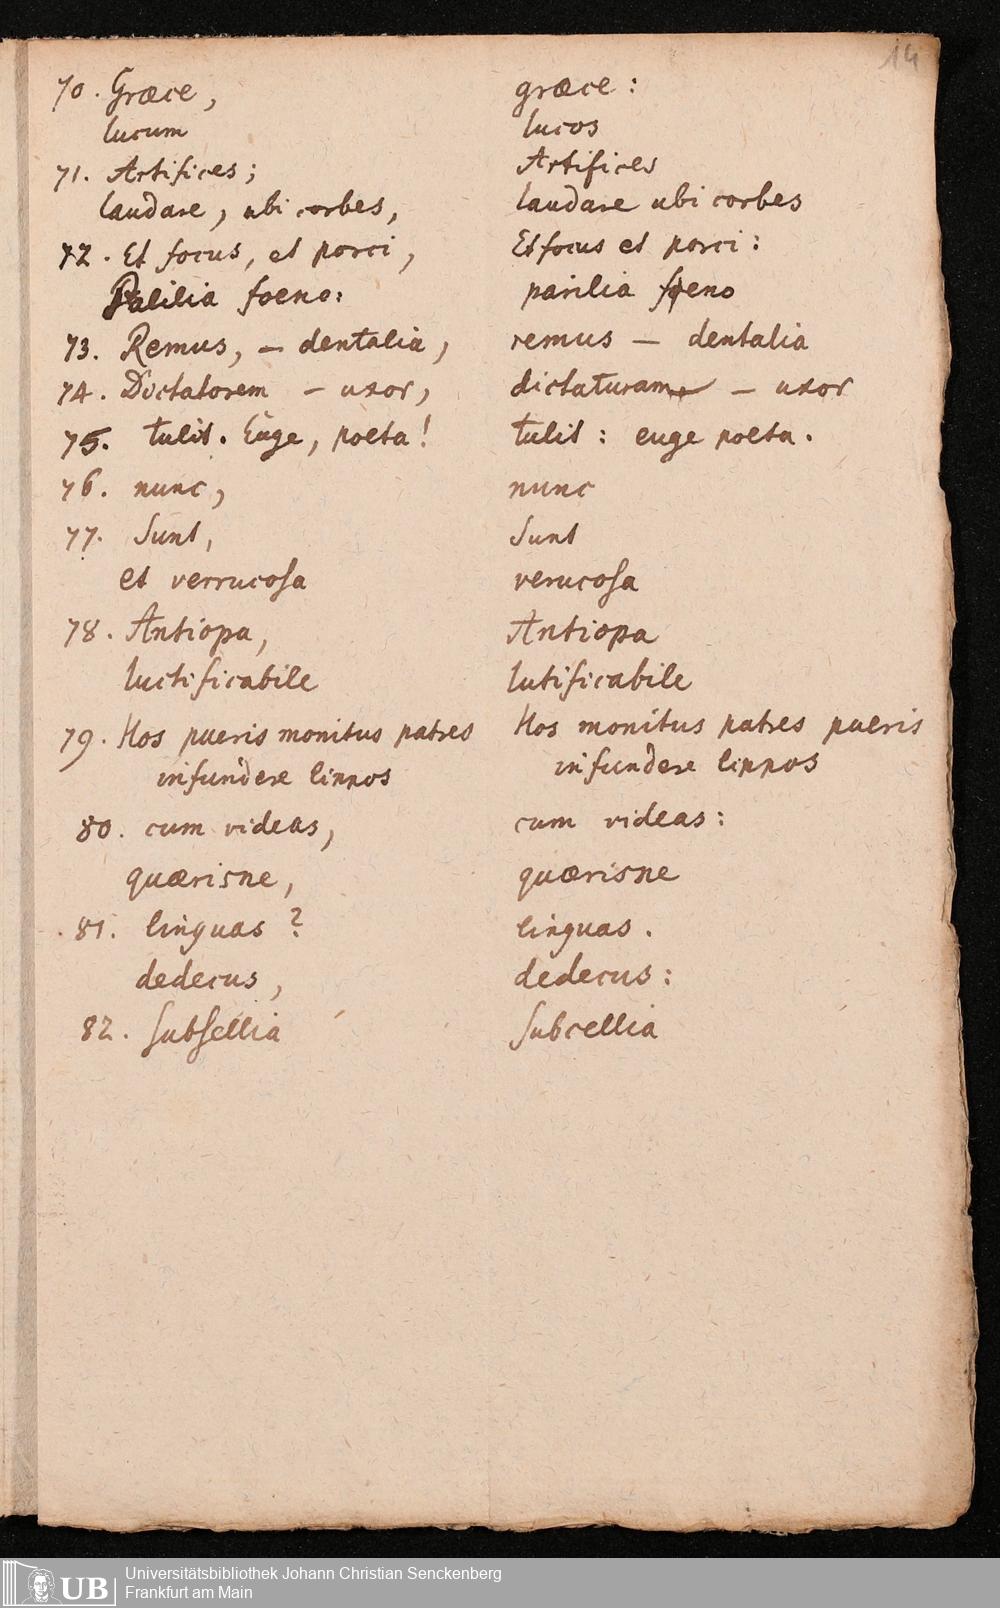 14
70. Græce, græce:
lucum lucos
71. Artifices; Artifices
laudare, ubi corbes, laudare ubi corbes
72. Et focus, et porci, Et focus et porci:
Palilia foeno: parilia foeno
73. Remus, – dentalia, remus – dentalia
74. Dictatorem – uxor, dictaturam – uxor
75. tulit. Euge, poeta! tulit: euge poeta.
76. nunc, nunc
77. Sunt, Sunt
et verrucosa verucosa
78. Antiopa, Antiopa
luctificabile lutificabile
79. Hos pueris monitus patres Hos monitus patres pueris
infundere lippos infundere lippos
80. cum videas, cum videas:
quærisne, quærisne
81. linguas? linguas.
dedecus, dedecus:
82. subsellia subcellia
UB Universitätsbibliothek Johann Christian Senckenberg
Frankfurt am Main